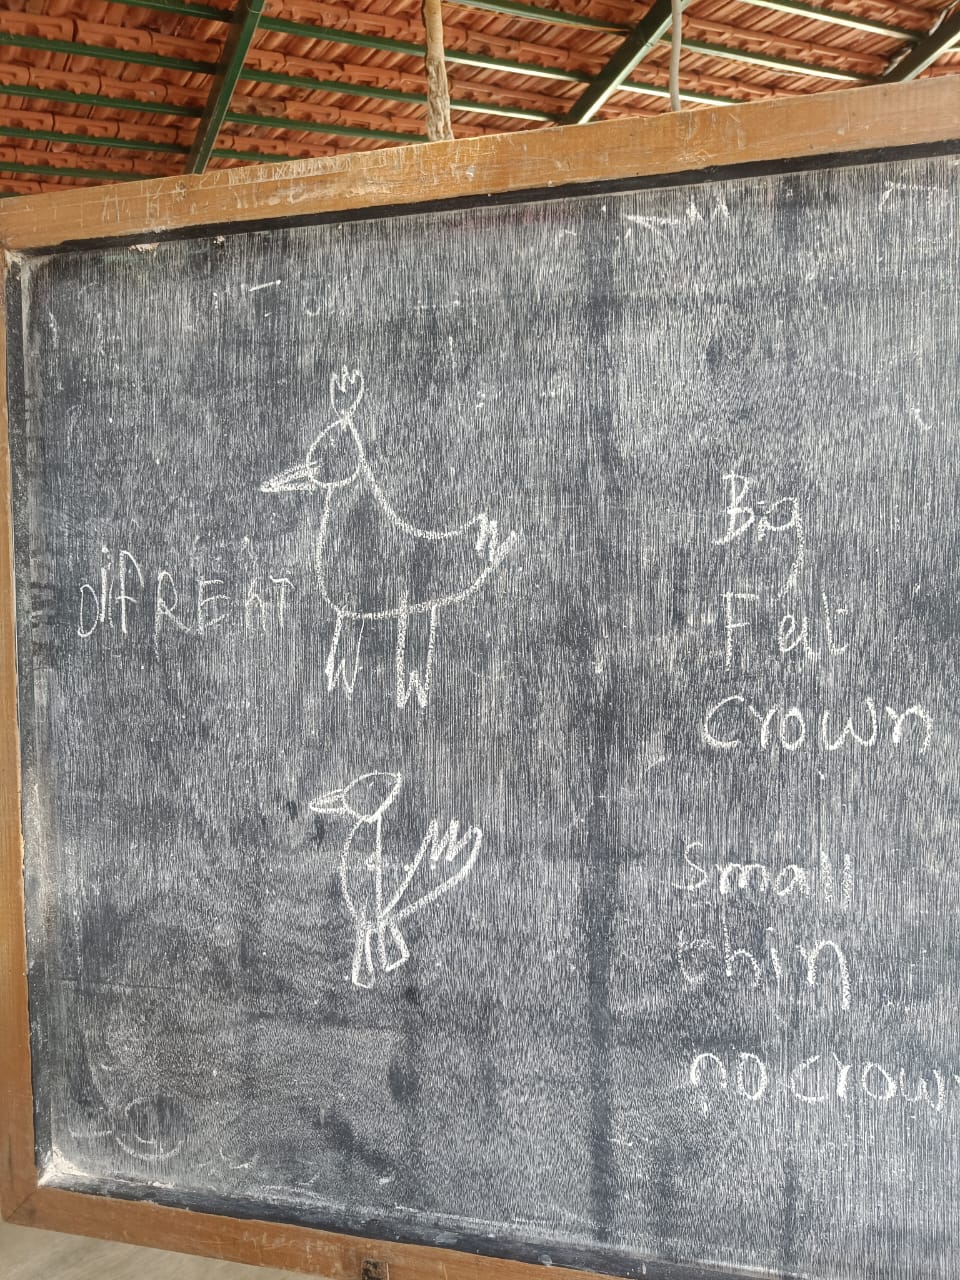 DifREAT
Big
Fat
Crown
Small
thin
no crow